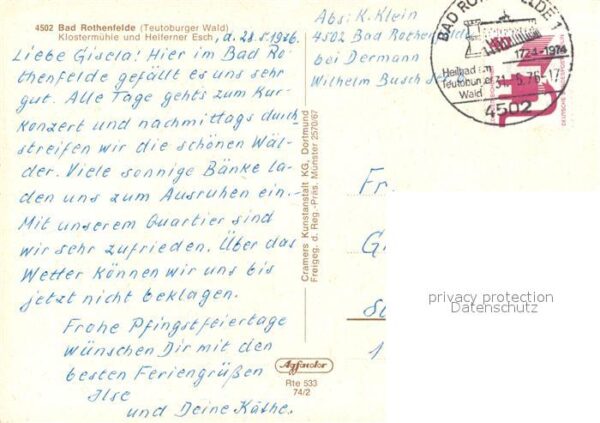 4502 Bad Rothenfelde (Teutoburger Wald)
Klostermühle und Helferner Esch
, d. 28.5.1976
Liebe Gisela! Hier im Bad Ro-
thenfelde gefällt es uns sehr
gut. Alle Tage gehts zum Kur-
konzert und nachmittags durch
streifen wir die schönen Wäl-
der. Viele sonnige Bänke la-
den uns zum Ausruhen ein.-
Mit unserem Quartier sind
wir sehr zufrieden. Über das
Wetter können wir uns bis
jetzt nicht beklagen.
Frohe Pfingstfeiertage
wünschen Dir mit den
besten Feriengrüßen
Ilse
und Deine Käthe.
Cramers Kunstanstalt KG, Dortmund
Freigeg. d. Reg.-Präs. Münster 2570/67
Agfacolor
Rte 533
74/2
Abs: K. Klein
4502 Bad Rothenfelde
bei Dermann
Wilhelm Busch
BAD ROTHENFELDE 1
1724-1974
Heilbad im
Teutoburger
Wald
31.5.76-17
4502
DEUTSCHE BUNDESPOST
Fr
G
1
privacy protection
Datenschutz